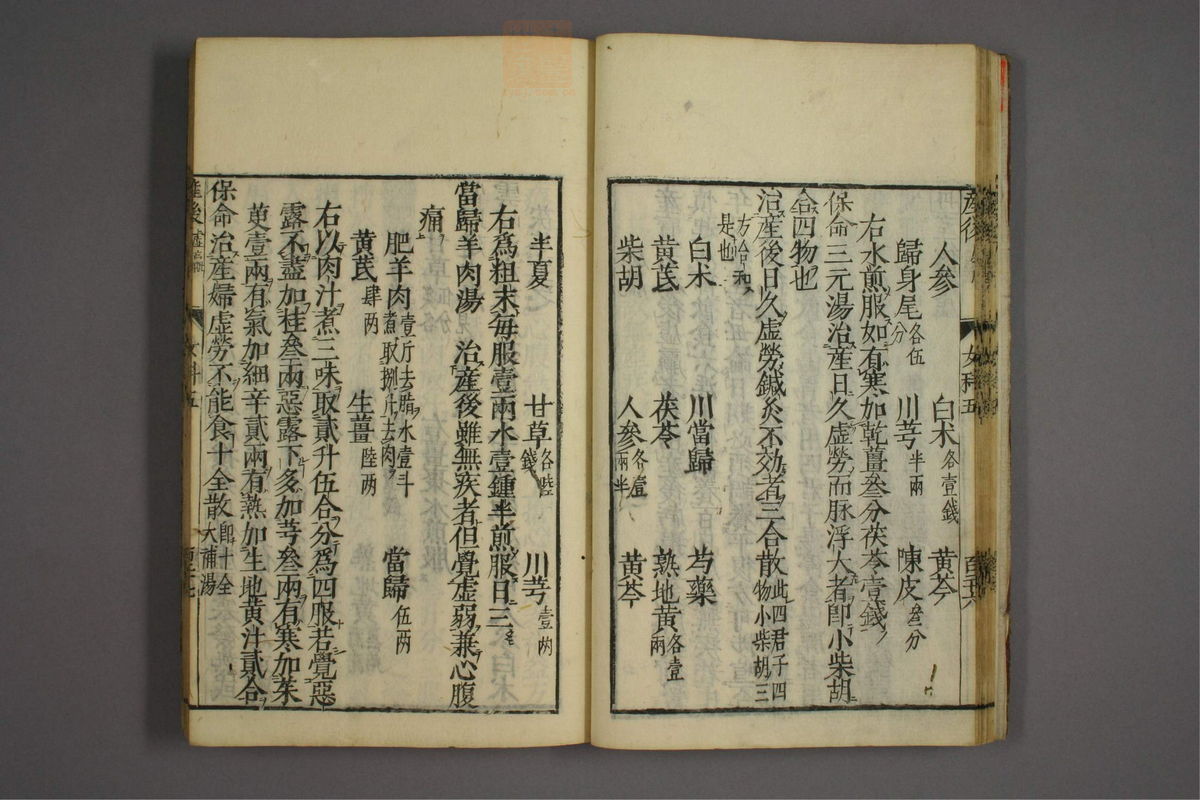 人參 白术各壹錢 黃芩
歸身尾各伍分 川芎半兩 陳皮叄分
右水煎服如有寒加乾薑叄分茯苓壹錢
保命三元湯治産日久虛勞而脉浮大者卽小柴胡
合四物也
治産後日久虛勞鍼灸不効者三合散此四君子四物小柴胡三
方合和是也
白术 川當歸 芍藥
黃芪 茯苓 熟地黃各壹兩
柴胡 人參各壹兩半 黃芩
産後 女科五
半夏 甘草各陸錢 川芎壹两
右爲粗末每服壹兩水壹鍾半煎服日三
當歸羊肉湯 治産後雖無疾者但覺虛弱兼心腹
痛
肥羊肉壹斤去脂水壹斗煮取捌升去肉 當歸伍两
黃芪肆两 生薑陸两
右以肉汁煮三味取貳升伍合分爲四服若覺惡
露不盡加桂叄兩惡露下多加芎叄兩有寒加茱
萸壹兩有氣加細辛貳兩有熱加生地黃汁貳合
保命治産婦虛勞不能食十全散卽十全大補湯
産後 女科五